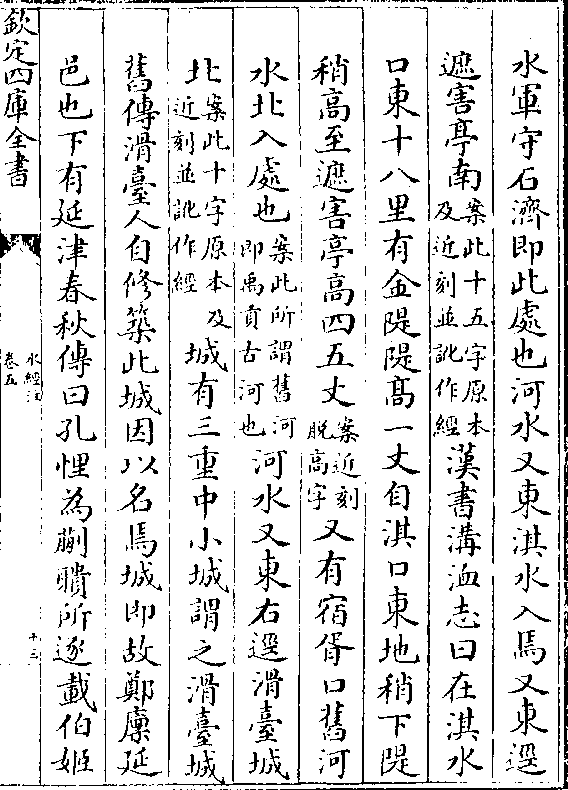 水軍守石濟即此處也河水又東淇水入焉又東逕
遮害亭南案此十五字原本及近刻並訛作經漢書溝洫志曰在淇水
口東十八里有金隄隄高一丈自淇口東地稍下隄
稍高至遮害亭高四五丈案近刻脱高字又有宿胥口舊河
水北入處也案此所謂舊河即禹貢古河也河水又東右逕滑臺城
北案此十字原本及近刻並訛作經城有三重中小城謂之滑臺城
舊傳滑臺人自修築此城因以名焉城即故鄭廩延
邑也下有延津春秋傳曰孔悝為蒯聵所逐載伯姬
欽定四庫全書
水經注
卷五
十三